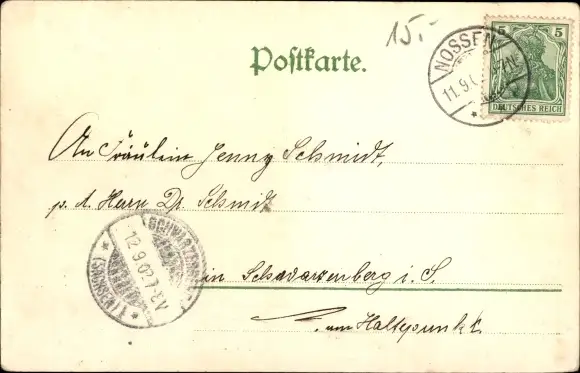 15.-
Postkarte.
NOSSEN
11.9.
5 5
DEUTSCHES REICH
An Fräulein Jenny Schmidt,
p. A. Herrn Dr. Schmidt
SCHWARZENBERG
12.9.02.7-8V
* (SACHSEN) *
in Schwarzenberg i. S.
am Haltepunkt.